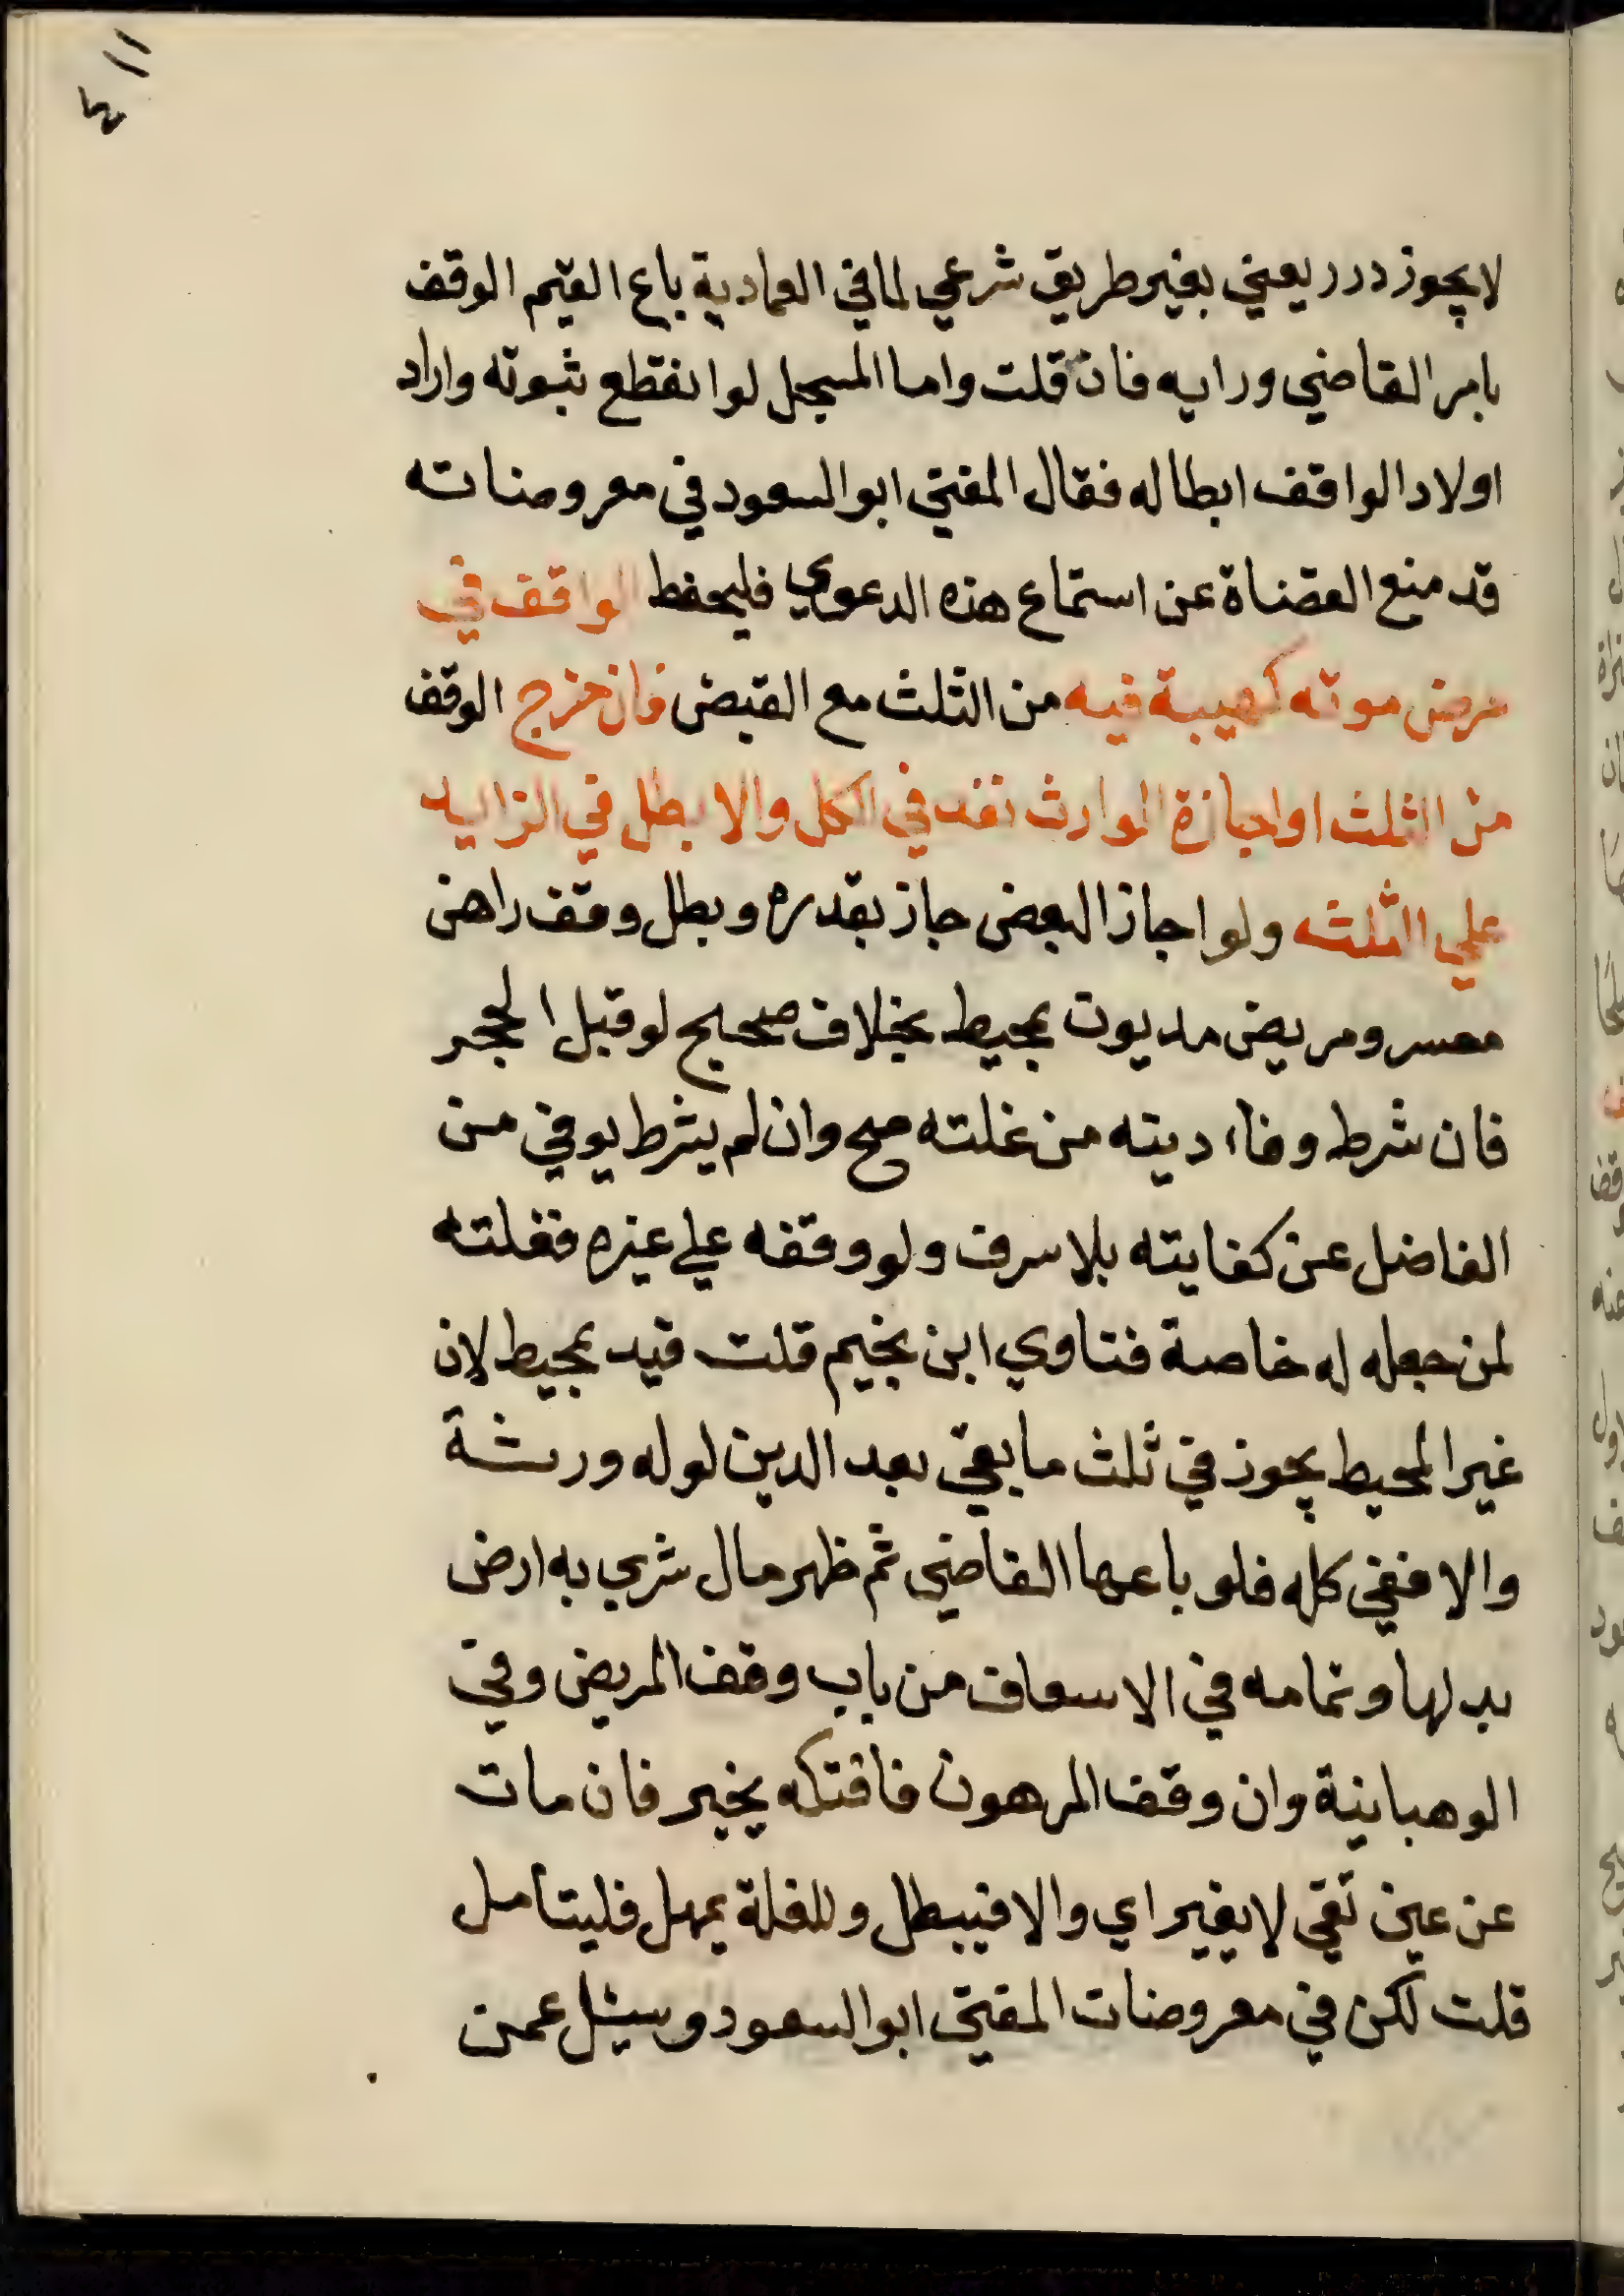 ٤١١
لايجوز درر يعني بغير طريق شرعي لما في العمادية باع القيم الوقف
بامر القاضي ورايه فان قلت واما المسجل لو انقطع ثبوته واراد
اولاد الواقف ابطاله فقال المفتي ابو السعود في معروضاته
قد منع القضاة عن استماع هذه الدعوي فليحفظ الواقف في
مرض موته كهيبة فيه من الثلث مع القبض فان خرج الوقف
من الثلث او اجازة الوارث نفد في الكل والا بطل في الزايد
علي الثلث ولو اجاز البعض جاز بقدره وبطل وقف راهن
معسر ومريض مديون بمحيط بخلاف صحيح لو قبل الحجر
فان شرط وفاء دينه من غلته صح وان لم يشرط يوفي من
الفاضل عن كفايته بلا سرف ولو وقفه علي غيره فغلته
لمن جعله له خاصة فتاوي ابن نجيم قلت قيد بمحيط لان
غير المحيط يجوز في ثلث ما بقي بعد الدين لو له ورثة
والا ففي كله فلو باعها القاضي ثم ظهر مال شري به ارض
بدلها وتمامه في الاسعاف من باب وقف المريض وفي
الوهبانية وان وقف المرهون فافتكه يخير فان مات
عن عين تقي لايغير اي والا فيبطل وللغلة يمهل فليتامل
قلت لكن في معروضات المفتي ابو السعود وسيئل عمن